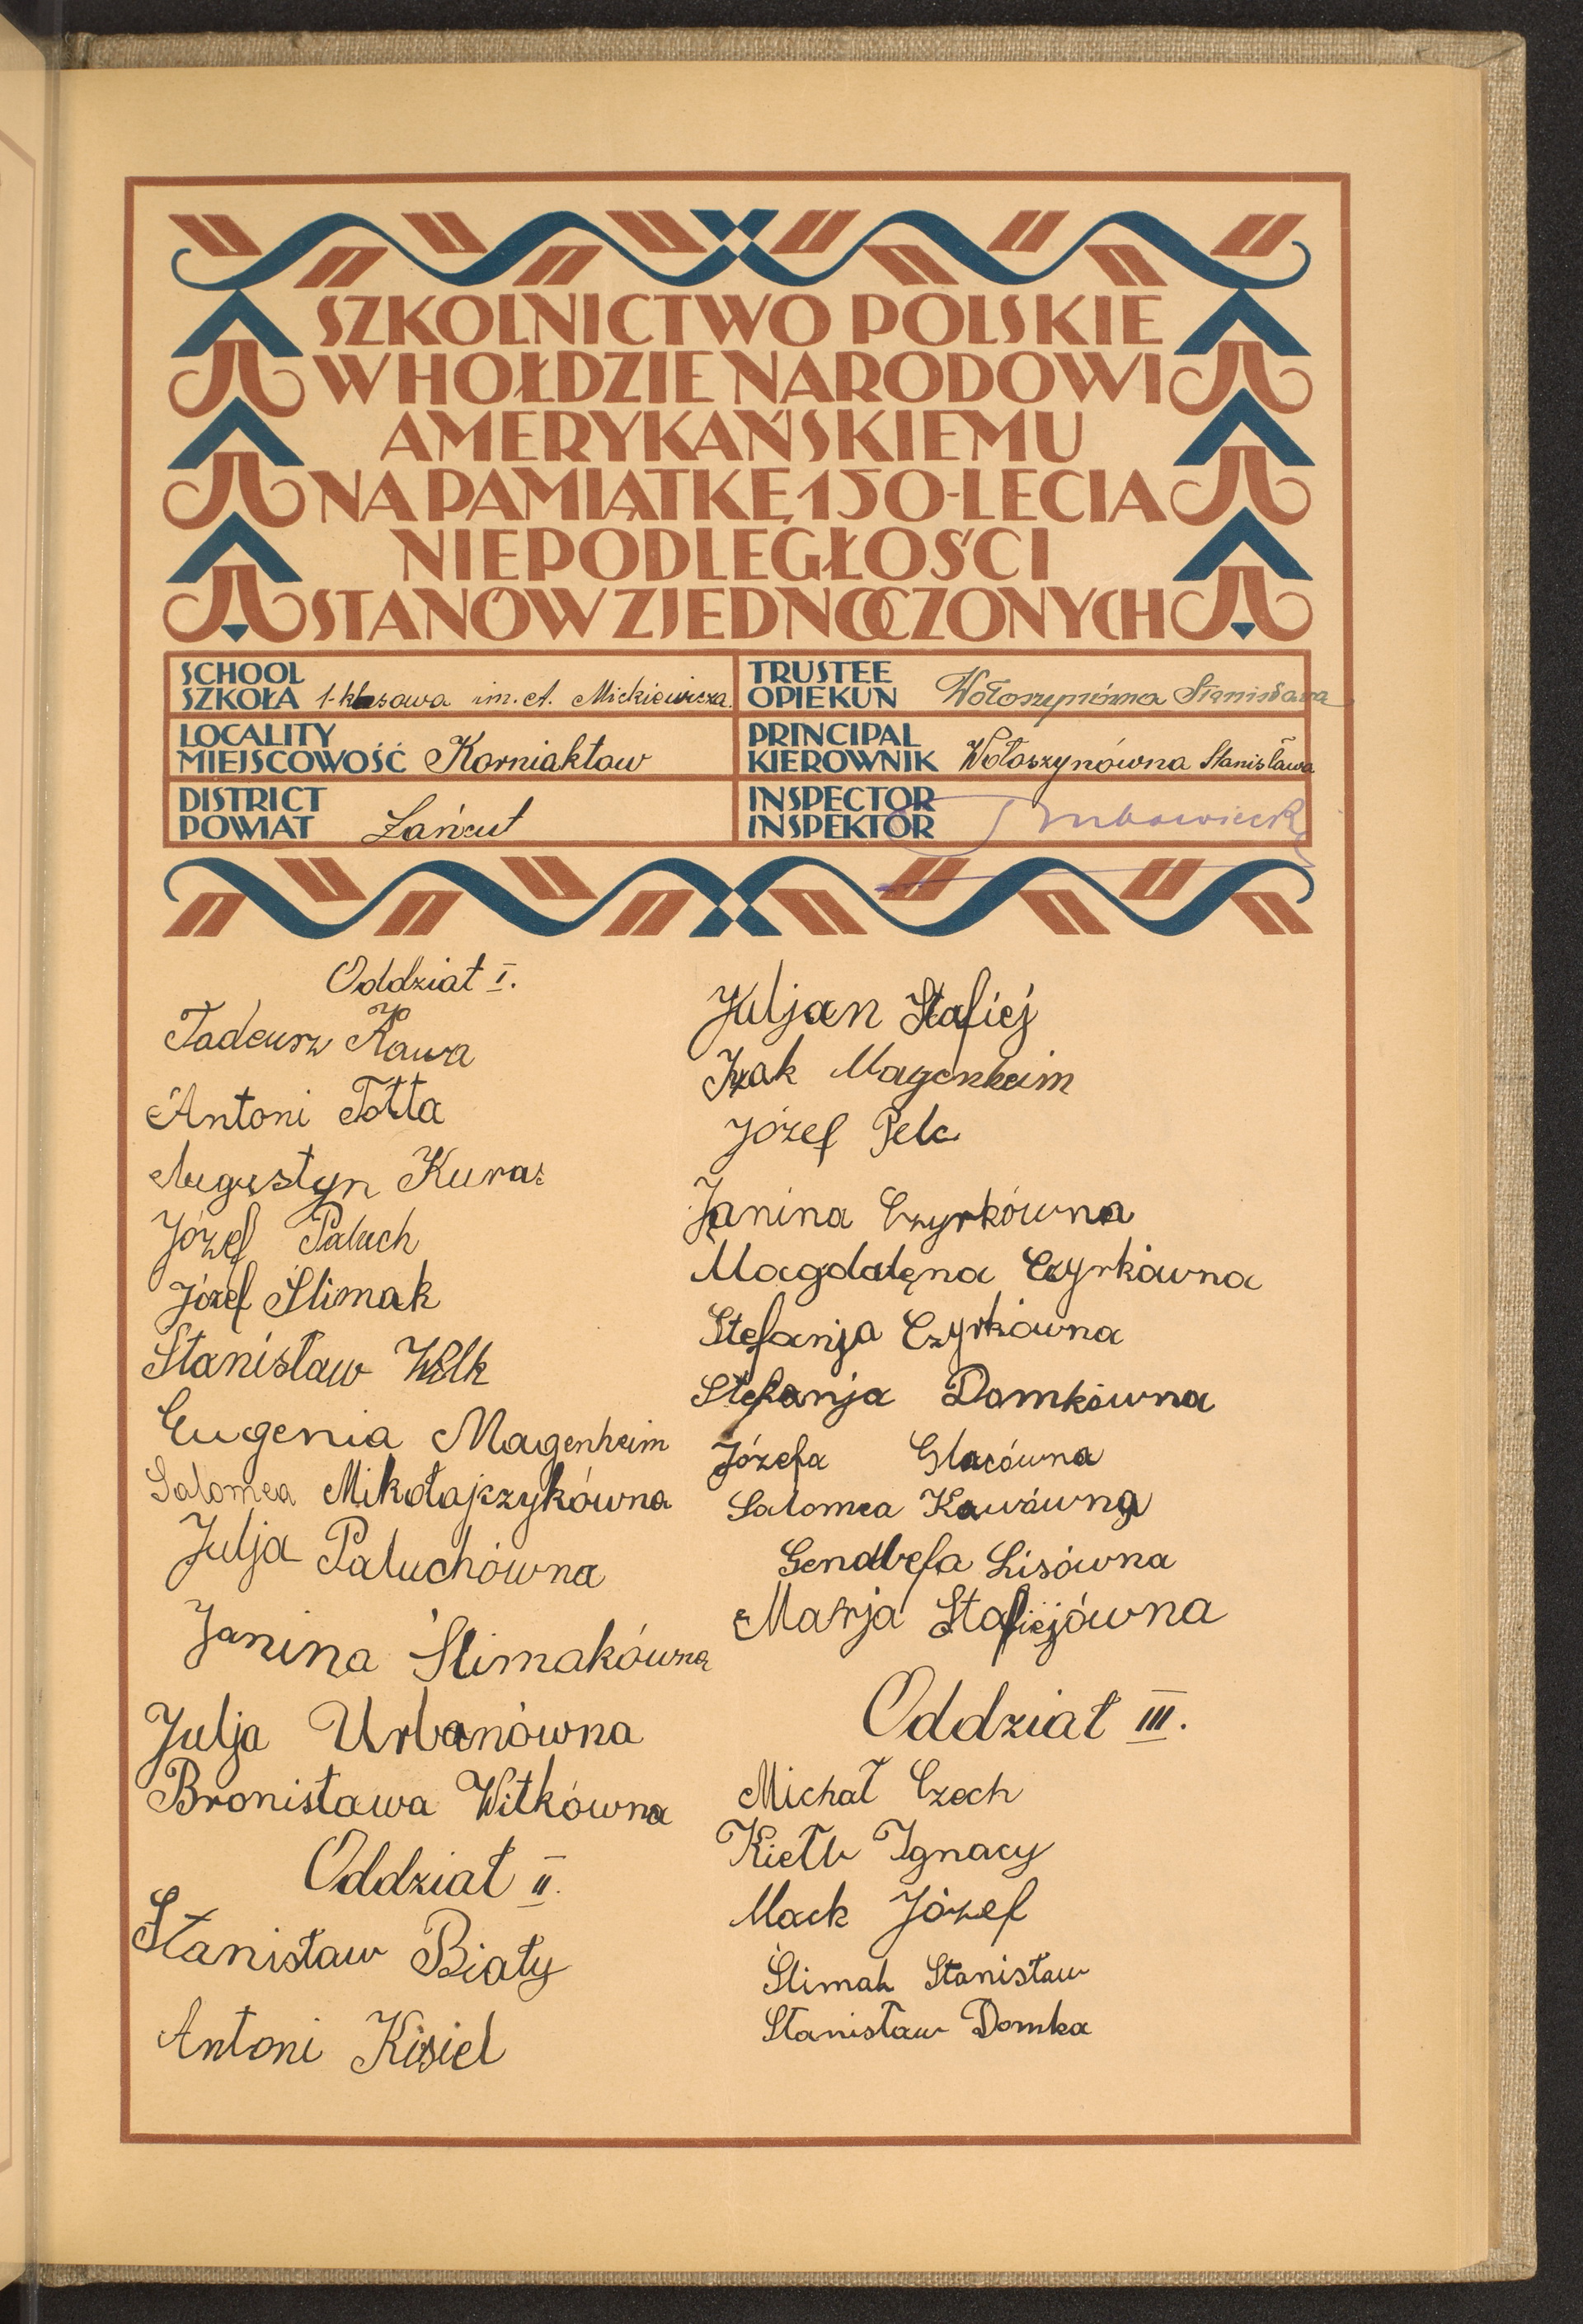 SZKOLNICTWO POLSKIE
W HOŁDZIE NARODOWI
AMERYKAŃSKIEMU
NA PAMIĄTKĘ 150-LECIA
NIEPODLEGŁOŚCI
STANÓW ZJEDNOCZONYCH
SCHOOL
SZKOŁA 1-klasowa im. A. Mickiewicza
TRUSTEE
OPIEKUN Wołoszynówna Stanisława
LOCALITY
MIEJSCOWOŚĆ Korniaktów
PRINCIPAL
KIEROWNIK Wołoszynówna Stanisława
DISTRICT
POWIAT Łańcut
INSPECTOR
INSPEKTOR
Oddział I.
Tadeusz Kawa
Antoni Tołta
Augustyn Kuras
Józef Paluch
Józef Ślimak
Stanisław Wilk
Eugenia Magenheim
Salomea Mikołajczykówna
Julja Paluchówna
Janina Ślimakówna
Julja Urbanówna
Bronisława Witkówna
Oddział II.
Stanisław Biały
Antoni Kisiel
Juljan Stafiej
Izak Magenheim
Józef Pelc
Janina Czyrkówna
Magdalęna Czyrkówna
Stefanja Czyrkówna
Stefanja Domkówna
Józefa Glacówna
Salomea Kawówna
Gendwefa Lisówna
Marja Stafiejówna
Oddział III.
Michał Czech
Kiełb Ignacy
Mack Józef
Ślimak Stanisław
Stanisław Domka